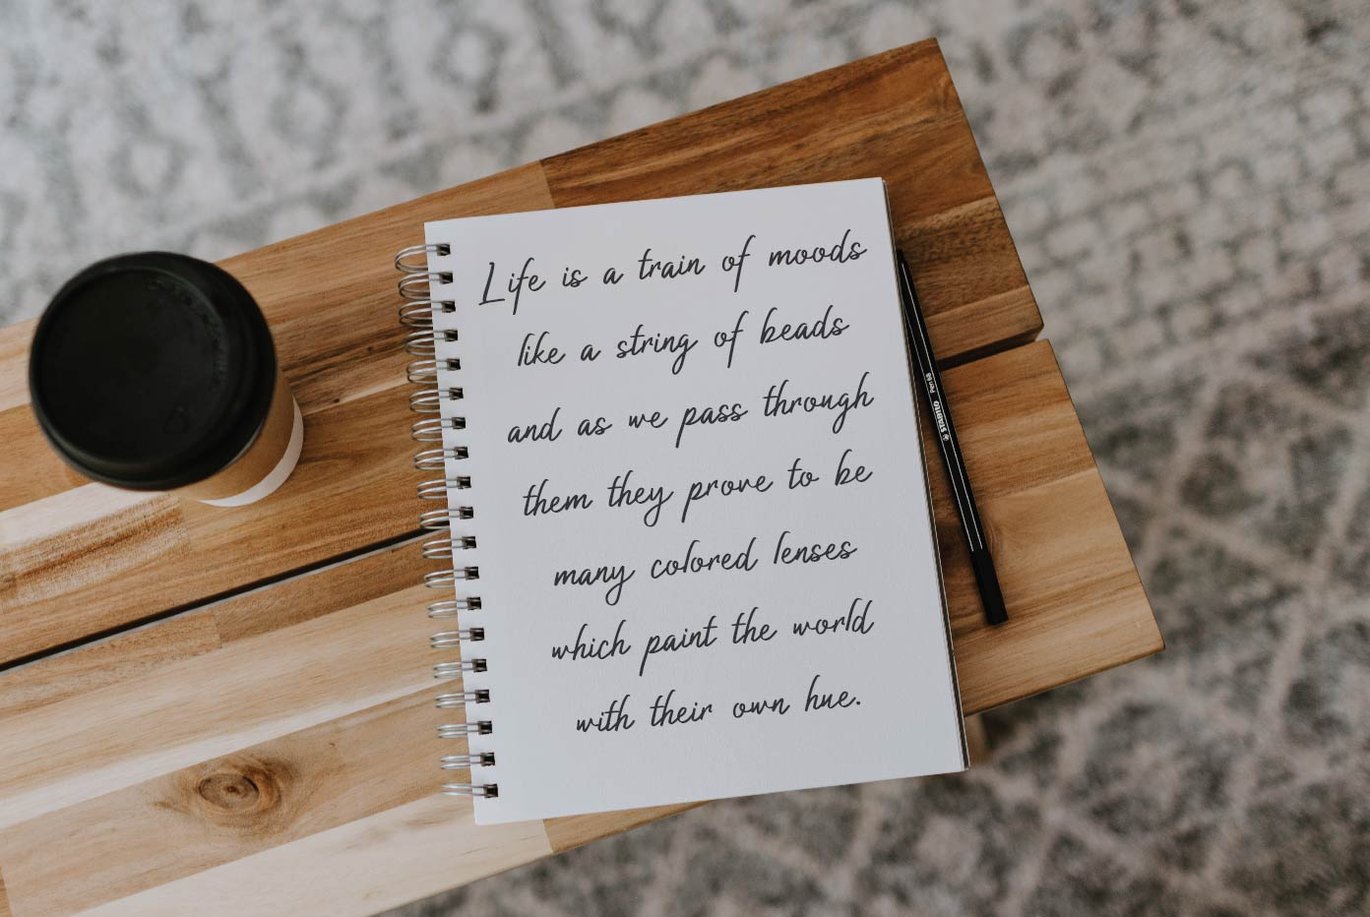 Life is a train of moods
like a string of beads
and as we pass through
them they prove to be
many colored lenses
which paint the world
with their own hue.
STABILO Pen 68